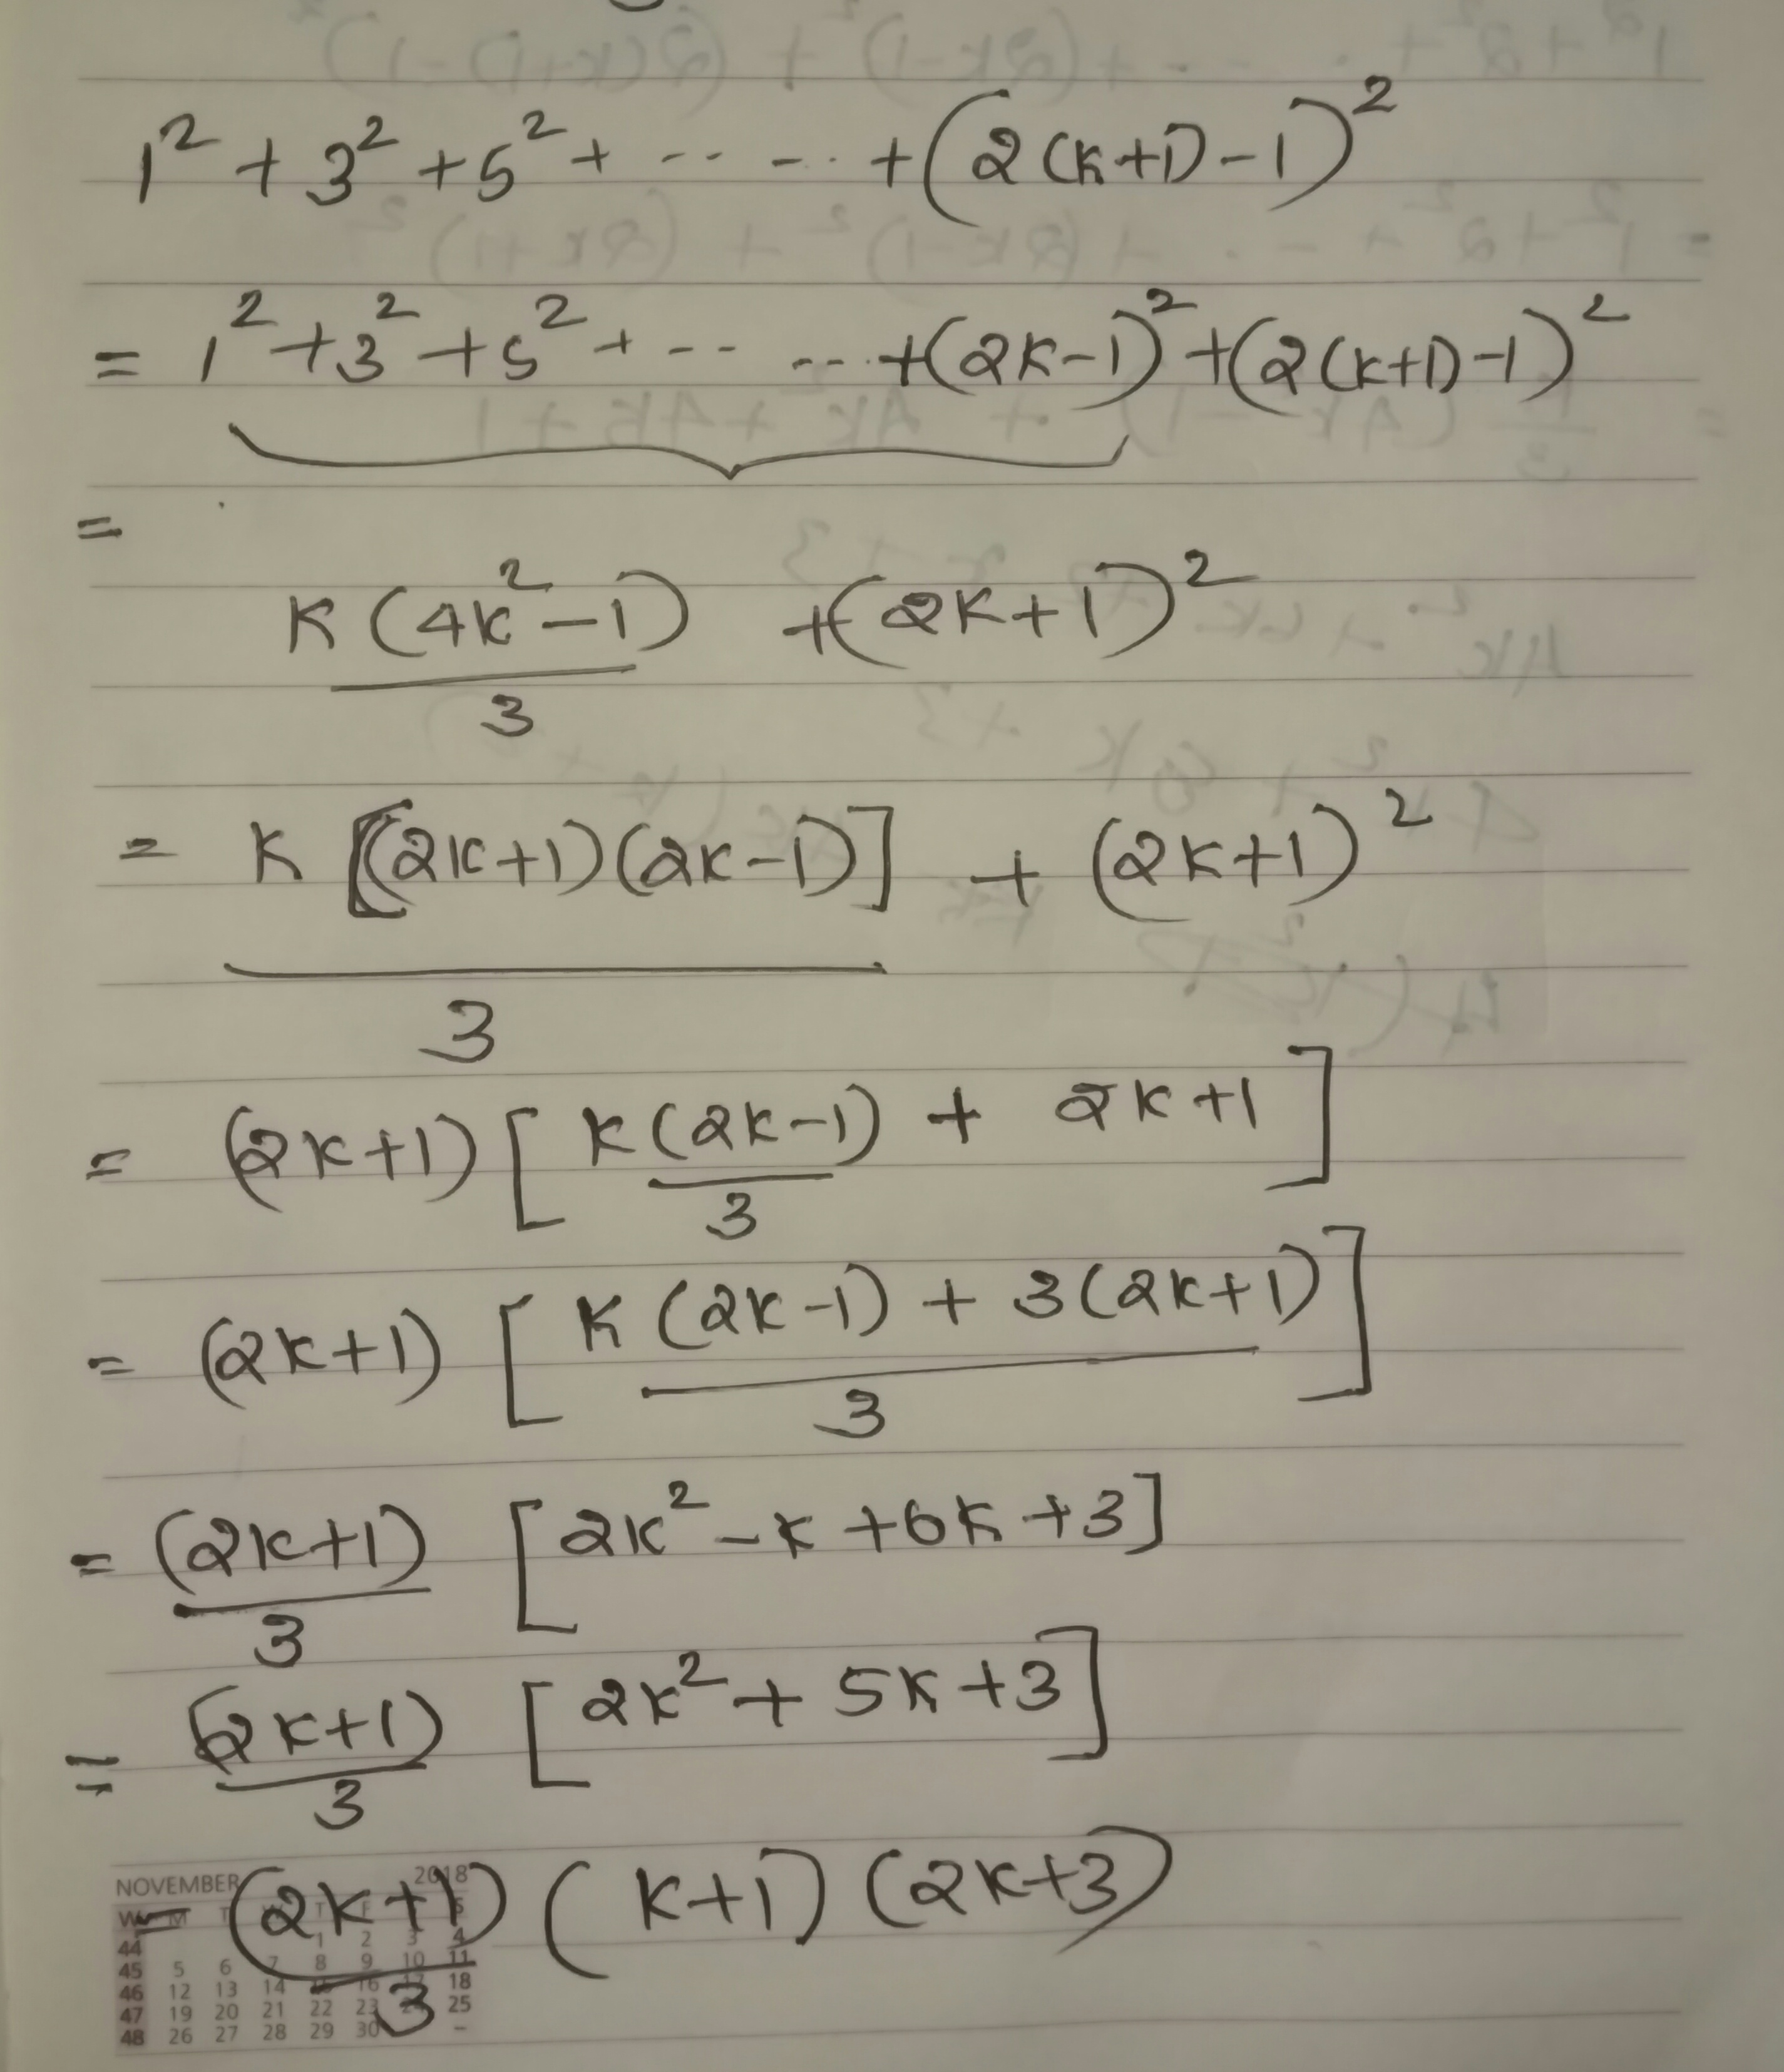 1² + 3² + 5² + -- -.. + (2(k+1)-1)²
= 1² + 3² + 5² + -- -.. + (2k-1)² + (2(k+1)-1)²
=
k(4k²-1)/3 + (2k+1)²
= k[(2k+1)(2k-1)]/3 + (2k+1)²
= (2k+1) [k(2k-1)/3 + 2k+1]
= (2k+1) [(k(2k-1) + 3(2k+1))/3]
= (2k+1)/3 [2k² - k + 6k + 3]
= (2k+1)/3 [2k² + 5k + 3]
= (2k+1)/3 (k+1) (2k+3)
NOVEMBER 2018
W M T T F S
44 1 2 3 4
45 5 6 7 8 9 10 11
46 12 13 14 16 18
47 19 20 21 22 23 25
48 26 27 28 29 30 -